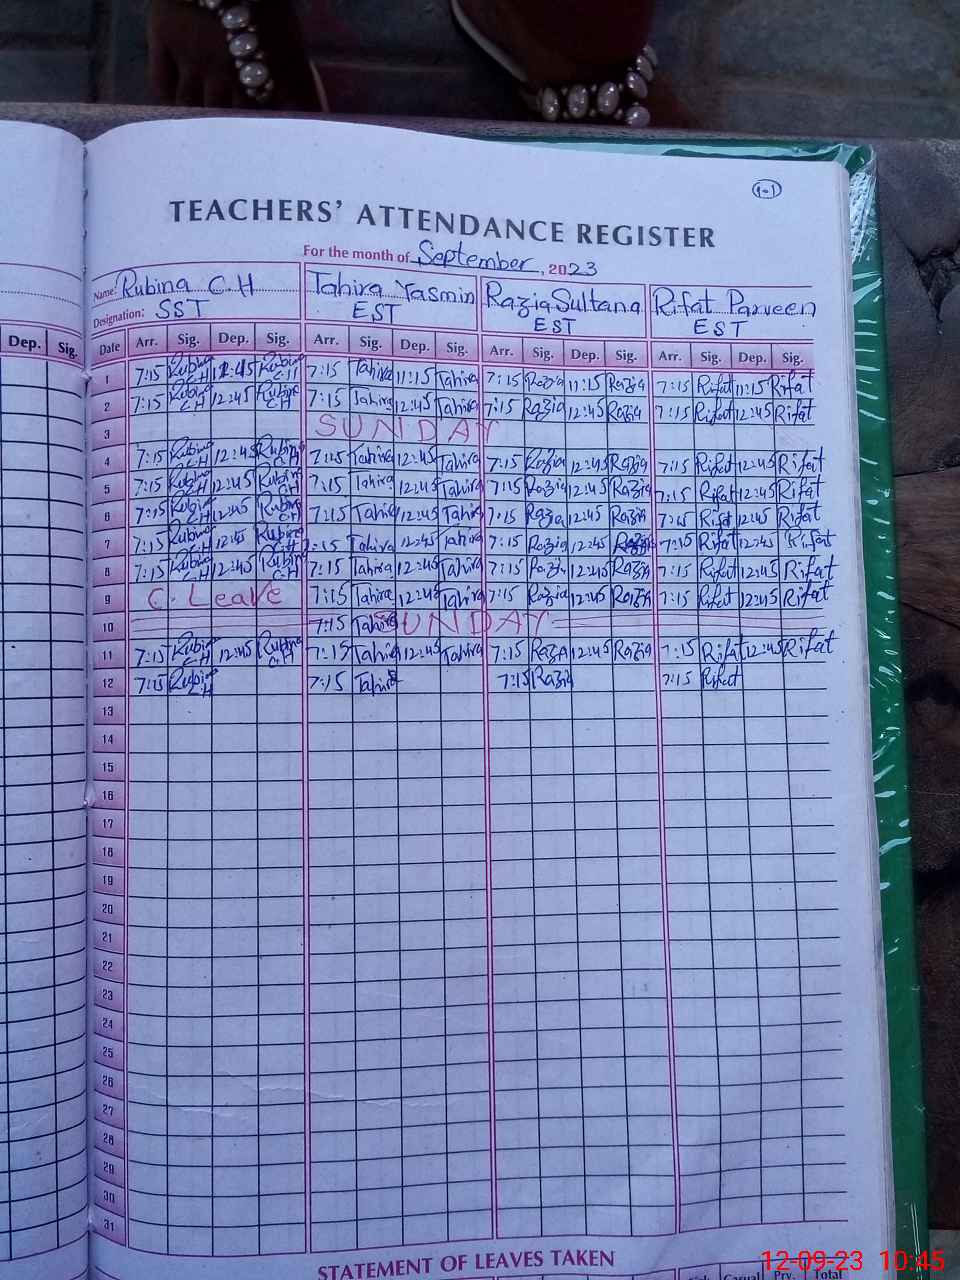 1-1
TEACHERS' ATTENDANCE REGISTER
For the month of September, 2023
Name: Rubina C.H Tahira Yasmin Razia Sultana Rifat Parveen
Designation: SST EST EST EST
Dep. Sig. Date Arr. Sig. Dep. Sig. Arr. Sig. Dep. Sig. Arr. Sig. Dep. Sig. Arr. Sig. Dep. Sig.
1 7:15 Rubina C.H Rubina C.H 7:15 Tahira 11:15 Tahira 7:15 Razia 11:15 Razia 7:15 Rifat 11:15 Rifat
2 7:15 Rubina C.H 12:45 Rubina C.H 7:15 Tahira 12:45 Tahira 7:15 Razia 12:45 Razia 7:15 Rifat 12:45 Rifat
3 SUNDAY
4 7:15 Rubina C.H 12:45 Rubina C.H 7:15 Tahira 12:45 Tahira 7:15 Razia 12:45 Razia 7:15 Rifat 12:45 Rifat
5 7:15 Rubina C.H 12:45 Rubina C.H 7:15 Tahira 12:45 Tahira 7:15 Razia 12:45 Razia 7:15 Rifat 12:45 Rifat
6 7:15 Rubina C.H 12:45 Rubina C.H 7:15 Tahira 12:45 Tahira 7:15 Razia 12:45 Razia 7:15 Rifat 12:45 Rifat
7 7:15 Rubina C.H 12:45 Rubina C.H 7:15 Tahira 12:45 Tahira 7:15 Razia 12:45 7:15 Rifat 12:45 Rifat
8 7:15 Rubina C.H 12:45 Rubina C.H 7:15 Tahira 12:45 Tahira 7:15 Razia 12:45 Razia 7:15 Rifat 12:45 Rifat
9 C. Leave 7:15 Tahira 12:45 Tahira 7:15 Razia 12:45 Razia 7:15 Rifat 12:45 Rifat
10 7:15 Tahira SUNDAY
11 7:15 Rubina C.H 12:45 Rubina C.H 7:15 Tahira 12:45 Tahira 7:15 Razia 12:45 Razia 7:15 Rifat 12:45 Rifat
12 7:15 Rubina C.H 7:15 Tahira 7:15 Razia 7:15 Rifat
13
14
15
16
17
18
19
20
21
22
23
24
25
26
27
28
29
30
31
STATEMENT OF LEAVES TAKEN
Casual Prv. Total
12-09-23 10:45